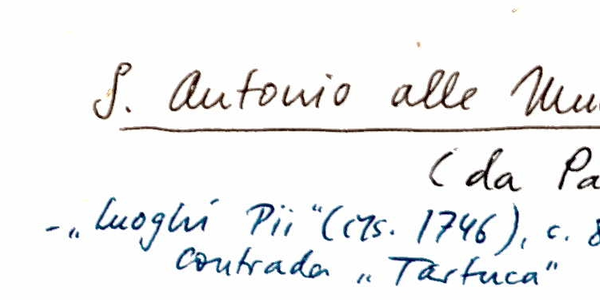 S. Antonio alle Mu
(da Pa
- „Luoghi Pii" (cts. 1746), c. 8
contrada „Tartuca"